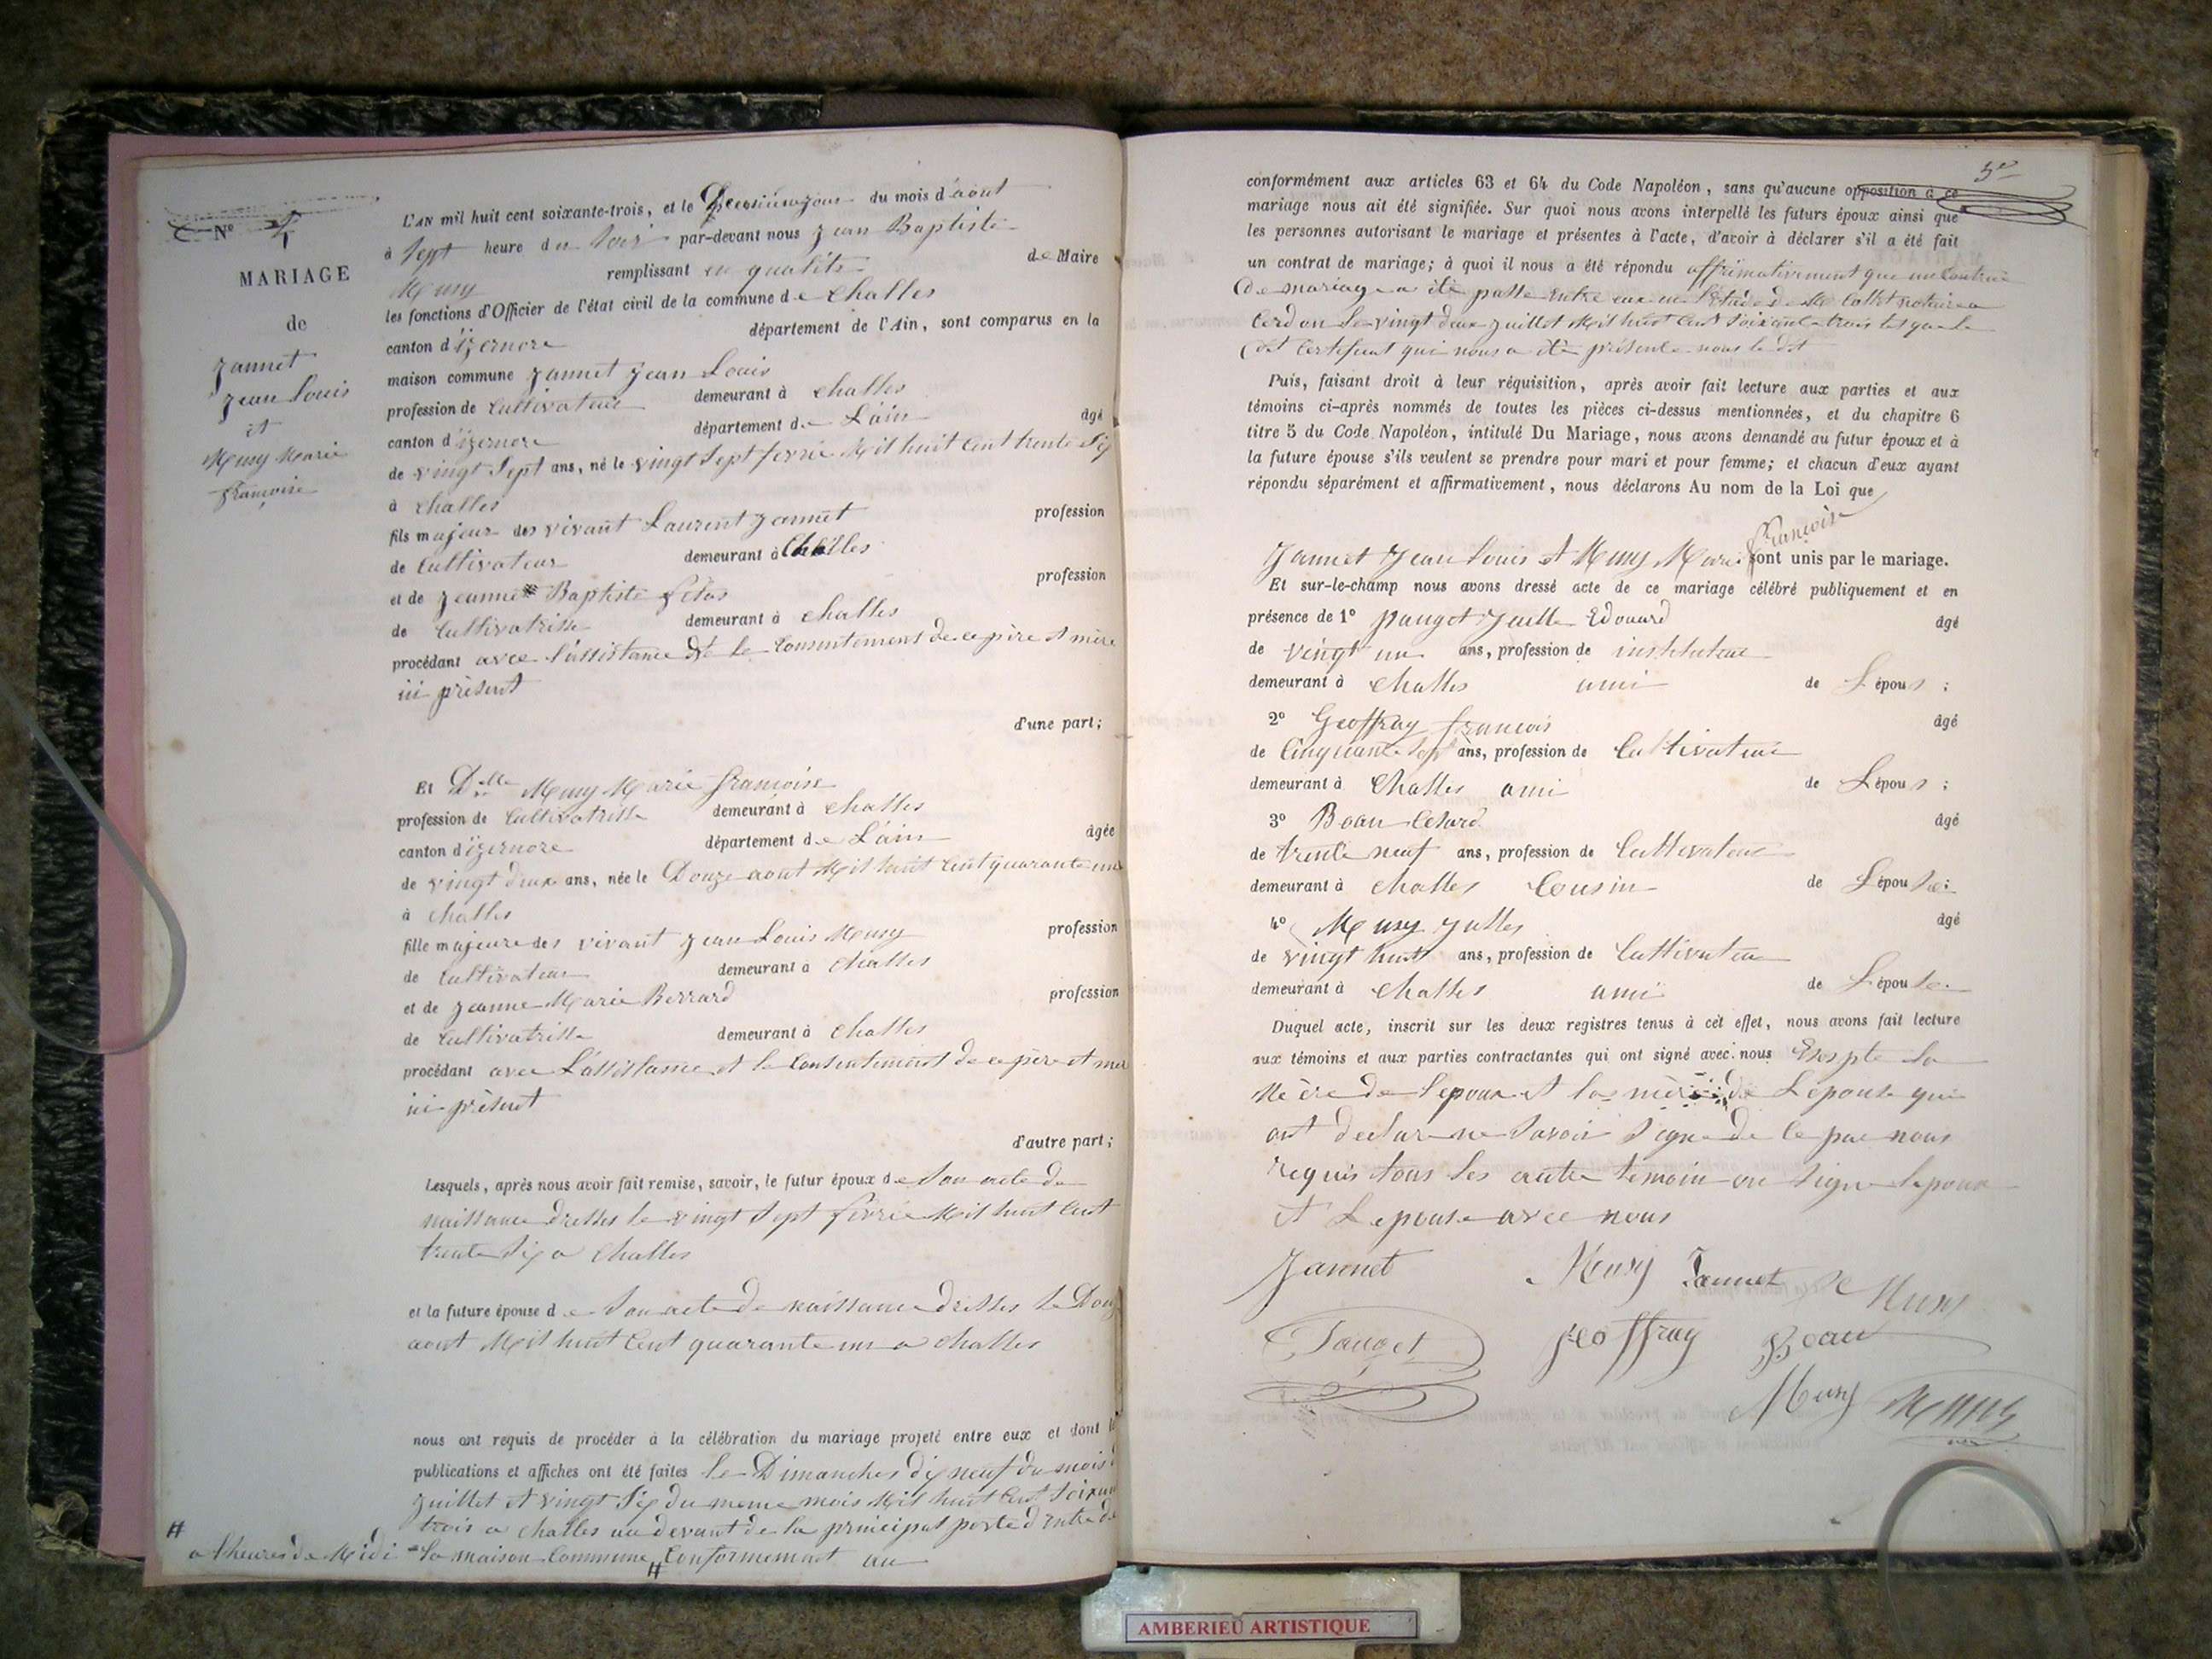 N° 4
MARIAGE
de
Jannet
Jean Louis
et
Musy Marie
françoise
L'AN mil huit cent soixante-trois, et le Deuxième jour du mois d'aout
à Sept heure du Soir par-devant nous Jean Baptiste
Musy remplissant en qualité de Maire
les fonctions d'Officier de l'état civil de la commune de Challes
canton d'izernore département de l'Ain, sont comparus en la
maison commune Jannet Jean Louis
profession de Cultivateur demeurant à Challes
canton d'izernore département de L'ain âgé
de vingt Sept ans, né le vingt Sept fevrié Mil huit Cent trente Six
à Challes
fils majeur des vivant Laurent Jannet profession
de Cultivateur demeurant à Challes
et de Jeanne Baptiste profession
de Cultivatrisse demeurant à Challes
procédant avec l'assistance et le Consentement de ce père et mère
ici présent
d'une part;
Et Dlle Musy Marie françoise
profession de Cultivatrisse demeurant à Challes
canton d'izernore département de L'ain âgée
de vingt deux ans, née le Douze aout Mil huit Cent quarante un
à Challes
fille majeure des vivant Jean Louis Musy profession
de Cultivateur demeurant à Challes
et de Jeanne Marie Berrard profession
de Cultivatrisse demeurant à Challes
procédant avec L'assistance et le Consentement de ce père et mer
ici présent
d'autre part;
Lesquels, après nous avoir fait remise, savoir, le futur époux de Son acte de
naissance dresses le vingt Sept fevrié Mil huit Cent
trente Six a Challes
et la future épouse de Son acte de naissance dresses le Douz
aout Mil huit Cent quarante un a Challes
nous ont requis de procéder à la célébration du mariage projeté entre eux et dont l
publications et affiches ont été faites le Dimanches dix neuf du mois d
Juillet et vingt Six du meme mois Mil huit Cent Soixan
trois a Challes au devant de la principal porte d'entre de
la maison Commune # Conformement au
# a l heures de Midi
5
conformément aux articles 63 et 64 du Code Napoléon, sans qu'aucune opposition à ce
mariage nous ait été signifiée. Sur quoi nous avons interpellé les futurs époux ainsi que
les personnes autorisant le mariage et présentes à l'acte, d'avoir à déclarer s'il a été fait
un contrat de mariage; à quoi il nous a été répondu affirmativement que un Contrat
de mariage a été passé entre eux en l'Etude de Me Collet notaire a
Cerdon le vingt deux Juillet Mil huit Cent Soixante trois tel que le
dit Certificat qui nous a été présenté nous le dit
Puis, faisant droit à leur réquisition, après avoir fait lecture aux parties et aux
témoins ci-après nommés de toutes les pièces ci-dessus mentionnées, et du chapitre 6
titre 5 du Code Napoléon, intitulé Du Mariage, nous avons demandé au futur époux et à
la future épouse s'ils veulent se prendre pour mari et pour femme; et chacun d'eux ayant
répondu séparément et affirmativement, nous déclarons Au nom de la Loi que
Jannet Jean Louis et Musy Marie françoise sont unis par le mariage.
Et sur-le-champ nous avons dressé acte de ce mariage célébré publiquement et en
présence de 1° pauget Edouard âgé
de vingt un ans, profession de instituteur
demeurant à Challes ami de L'époux ;
2° Geoffray françois âgé
de Cinquante Sept ans, profession de Cultivateur
demeurant à Challes ami de L'époux ;
3° Beau Césard âgé
de trente neuf ans, profession de Cultivateur
demeurant à Challes Cousin de L'épouse ;
4° Musy Jules âgé
de vingt huit ans, profession de Cultivateur
demeurant à Challes ami de L'épouse
Duquel acte, inscrit sur les deux registres tenus à cet effet, nous avons fait lecture
aux témoins et aux parties contractantes qui ont signé avec nous Exepté la
Mère de lepoux et la mère de Lepouse qui
ont declaré ne Savoir Signé de ce par nous
requis tous les autre temoin on Signe lepoux
et Lepouse avec nous
Jannet Musy Jannet Musy
Pauget geoffray Beau
Musy Musy
AMBERIEU ARTISTIQUE